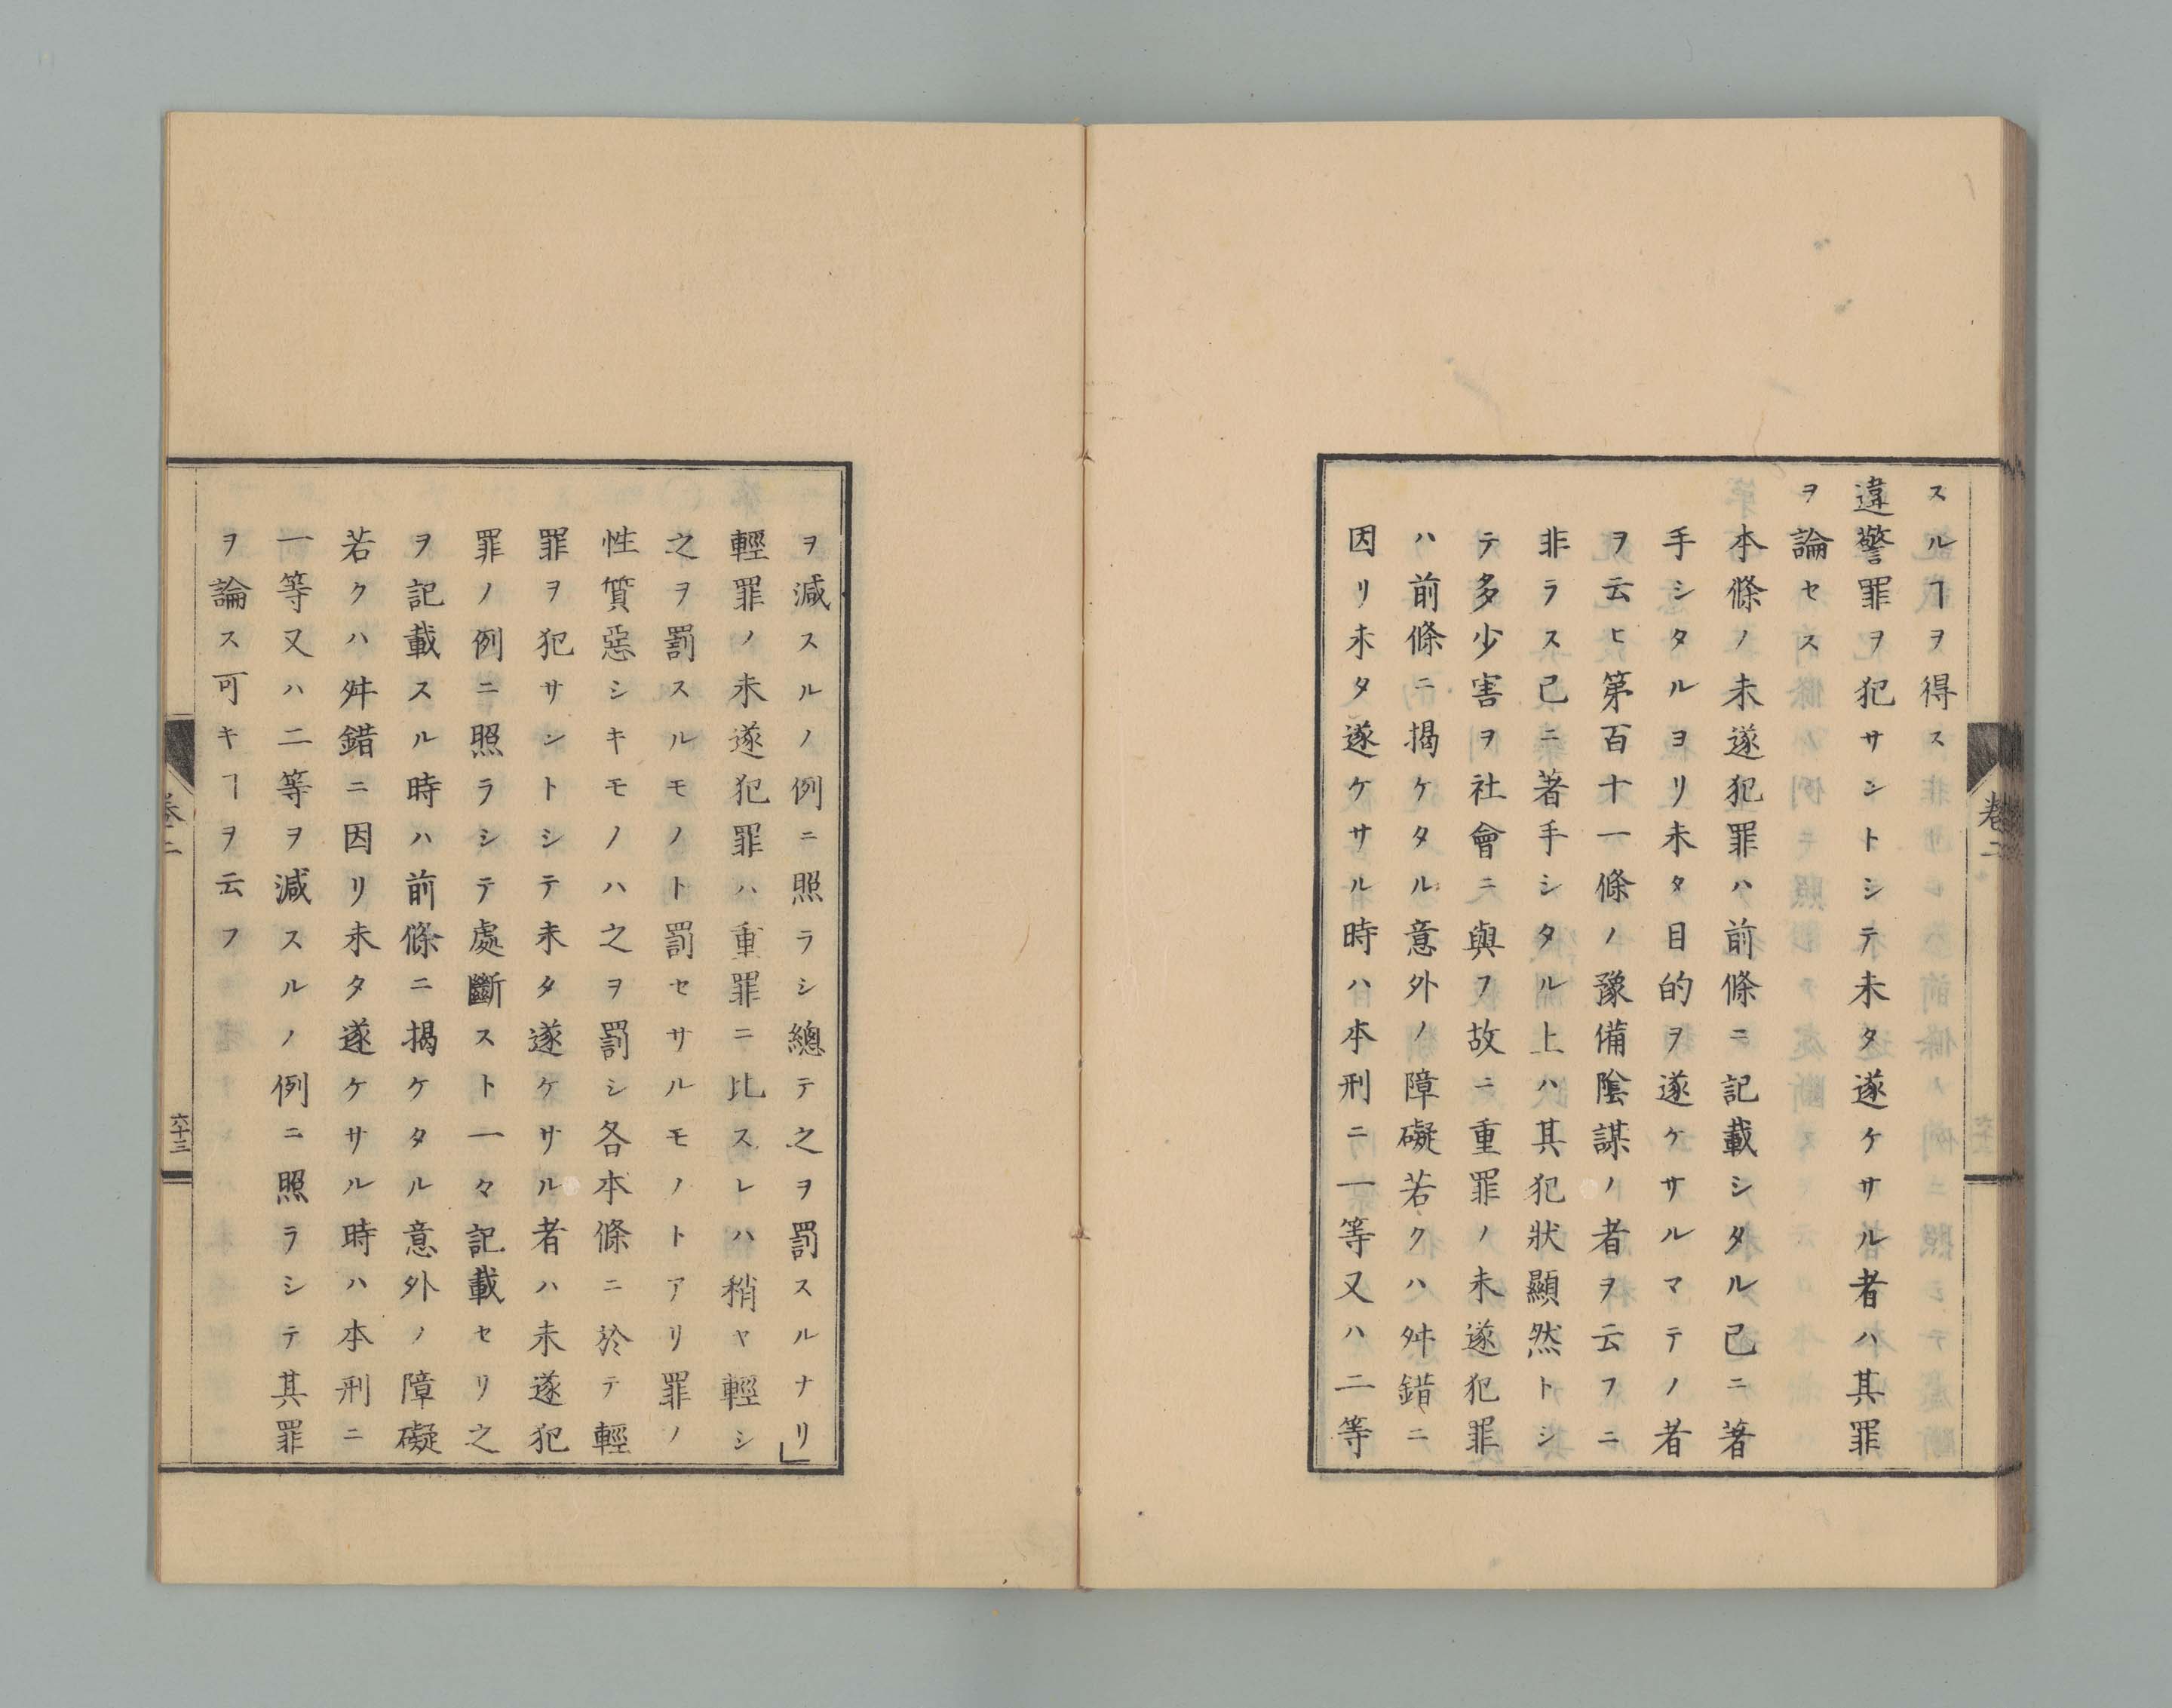 スルヿヲ得ス
違警罪ヲ犯サントシテ未タ遂ケサル者ハ其罪
ヲ論セス
本條ノ未遂犯罪ハ前條ニ記載シタル已ニ著
手シタルヨリ未タ目的ヲ遂ケサルマテノ者
ヲ云ヒ第百十一條ノ豫備陰謀ノ者ヲ云フニ
非ラス已ニ著手シタル上ハ其犯狀顯然トシ
テ多少害ヲ社會ニ與フ故ニ重罪ノ未遂犯罪
ハ前條ニ揭ケタル意外ノ障礙若クハ舛錯ニ
因リ未タ遂ケサル時ハ本刑ニ一等又ハ二等
卷二
ヲ減スルノ例ニ照ラシ總テ之ヲ罰スルナリ」
輕罪ノ未遂犯罪ハ重罪ニ比スレハ稍ヤ輕シ
之ヲ罰スルモノト罰セサルモノトアリ罪ノ
性質惡シキモノハ之ヲ罰シ各本條ニ於テ輕
罪ヲ犯サントシテ未タ遂ケサル者ハ未遂犯
罪ノ例ニ照ラシテ處斷スト一々記載セリ之
ヲ記載スル時ハ前條ニ揭ケタル意外ノ障礙
若クハ舛錯ニ因リ未タ遂ケサル時ハ本刑ニ
一等又ハ二等ヲ減スルノ例ニ照ラシテ其罪
ヲ論ス可キヿヲ云フ
卷二
六十三